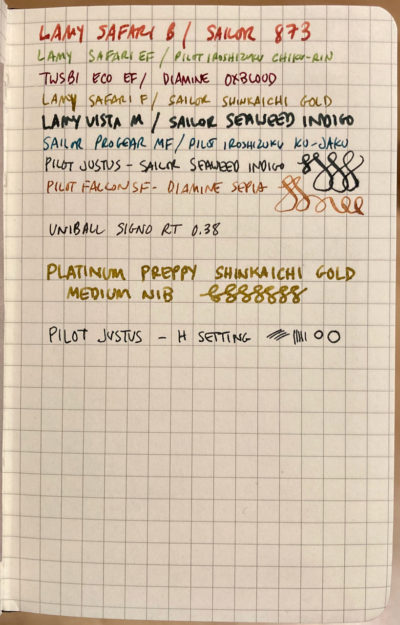 LAMY SAFARI B / SAILOR 873
LAMY SAFARI EF / PILOT IROSHIZUKU CHIKU-RIN
TWSBI ECO EF / DIAMINE OXBLOOD
LAMY SAFARI F / SAILOR SHINKAICHI GOLD
LAMY VISTA M / SAILOR SEAWEED INDIGO
SAILOR PROGEAR MF / PILOT IROSHIZUKU KU-JAKU
PILOT JUSTUS - SAILOR SEAWEED INDIGO
PILOT FALCON SF - DIAMINE SEPIA
UNIBALL SIGNO RT 0.38
PLATINUM PREPPY SHINKAICHI GOLD
MEDIUM NIB
PILOT JUSTUS - H SETTING